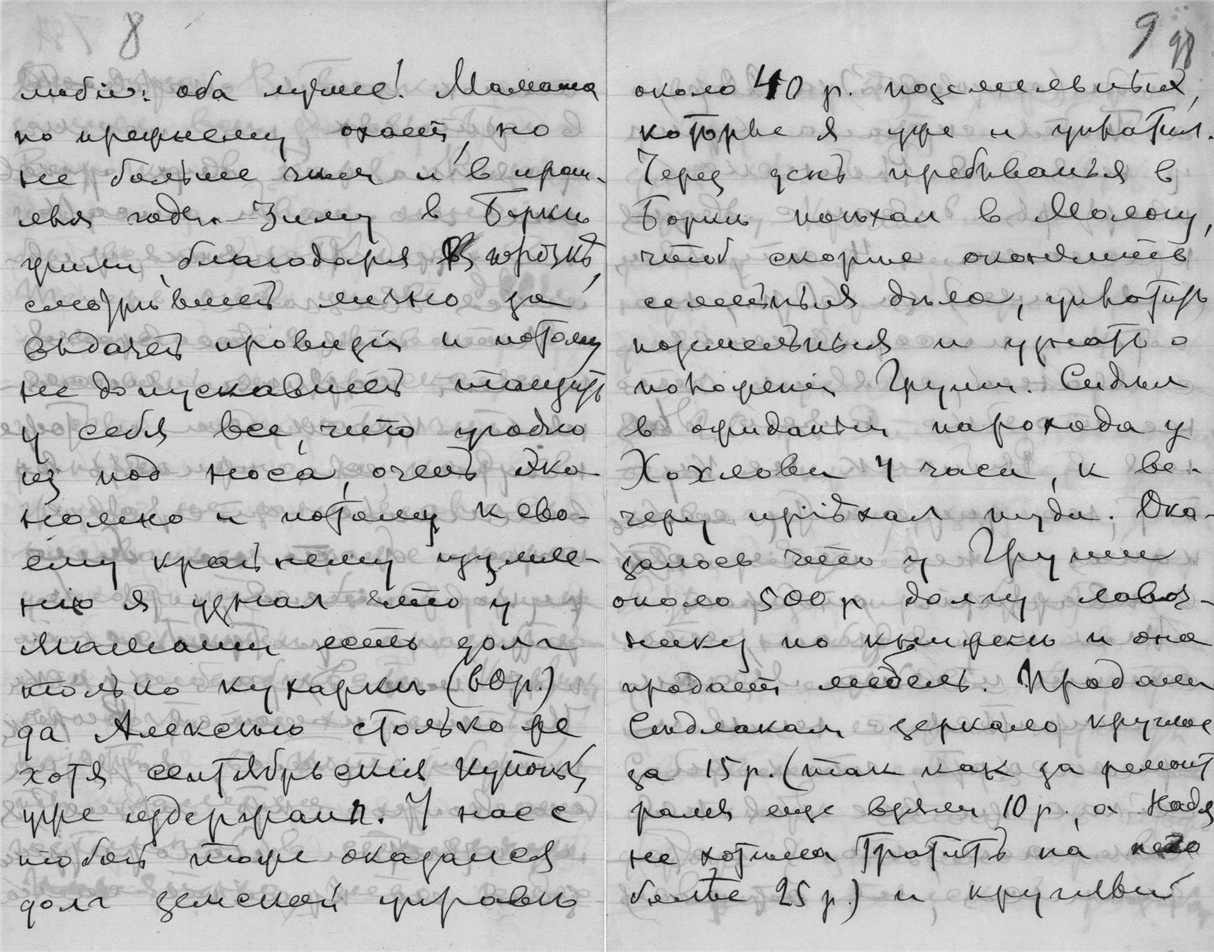 8
любiю: оба лучше! Мамаша
по прежнему охает, но
не больше чем и въ прош-
лые годы. Зиму в Борки
жили, благодаря Юрочкѣ,
смотрѣвшей лично за
выдачей провизiи и потому
не допускавшей тащить
у себя все, что угодно
из под носа, очень эко-
номно и потому к ево-
ему крайнему изумле-
нiю я узнал что у
Мамаши есть долг
только кухаркѣ (60 р.)
да Алексѣю столько же
хотя сентябрьскiя купоны
уже издержаны. У нас с
тобой тоже оказался
долг земской управѣ
9
около 40 р. поземельных,
которые я уже и уплатил.
Через день пребыванья в
Борки поѣхал в Мологу,
чтоб скорѣе окончить
семейныя дѣла, уплатить
поземельныя и узнать о
положенiи Груши. Сидѣл
в ожиданьи парохода у
Хохлова 4 часа, к ве-
черу прiѣхал туда. Ока-
залось что у Груши
около 500 р долгу лавоч-
нику по книжкѣ и она
продает мебель. Продали
зеркало круглое
за 15 р. (так как за ремонт
рамы еще взяли 10 р., а Надя
не хотѣла тратить на него
болѣе 25 р.) и, круглый